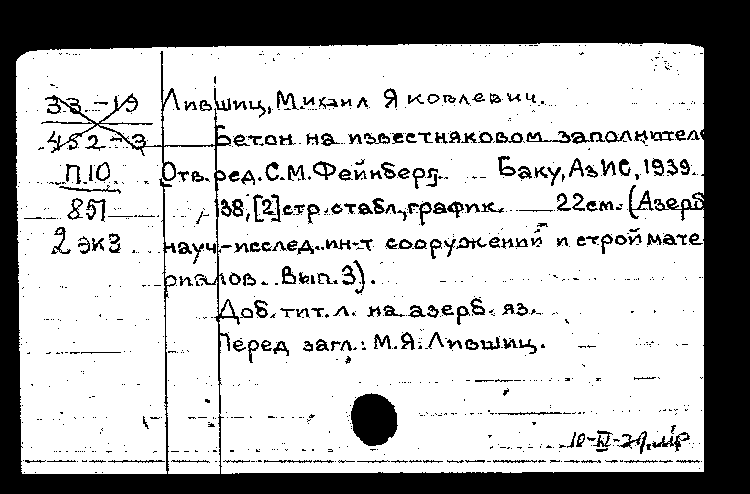 33-19 Лившиц, Михаил Яковлевич.
452-3 Бетон на известняковом заполнителе
П.10 Отв. ред. С.М. Фейнберг. Баку, АзИС, 1939.
851 38, [2] стр. с табл., график. 22 см. (Азерб
2 экз науч.-исслед. ин-т сооружений и строймате-
риалов. Вып. 3).
Доб. тит. л. на азерб. яз.
Перед загл.: М.Я. Лившиц.